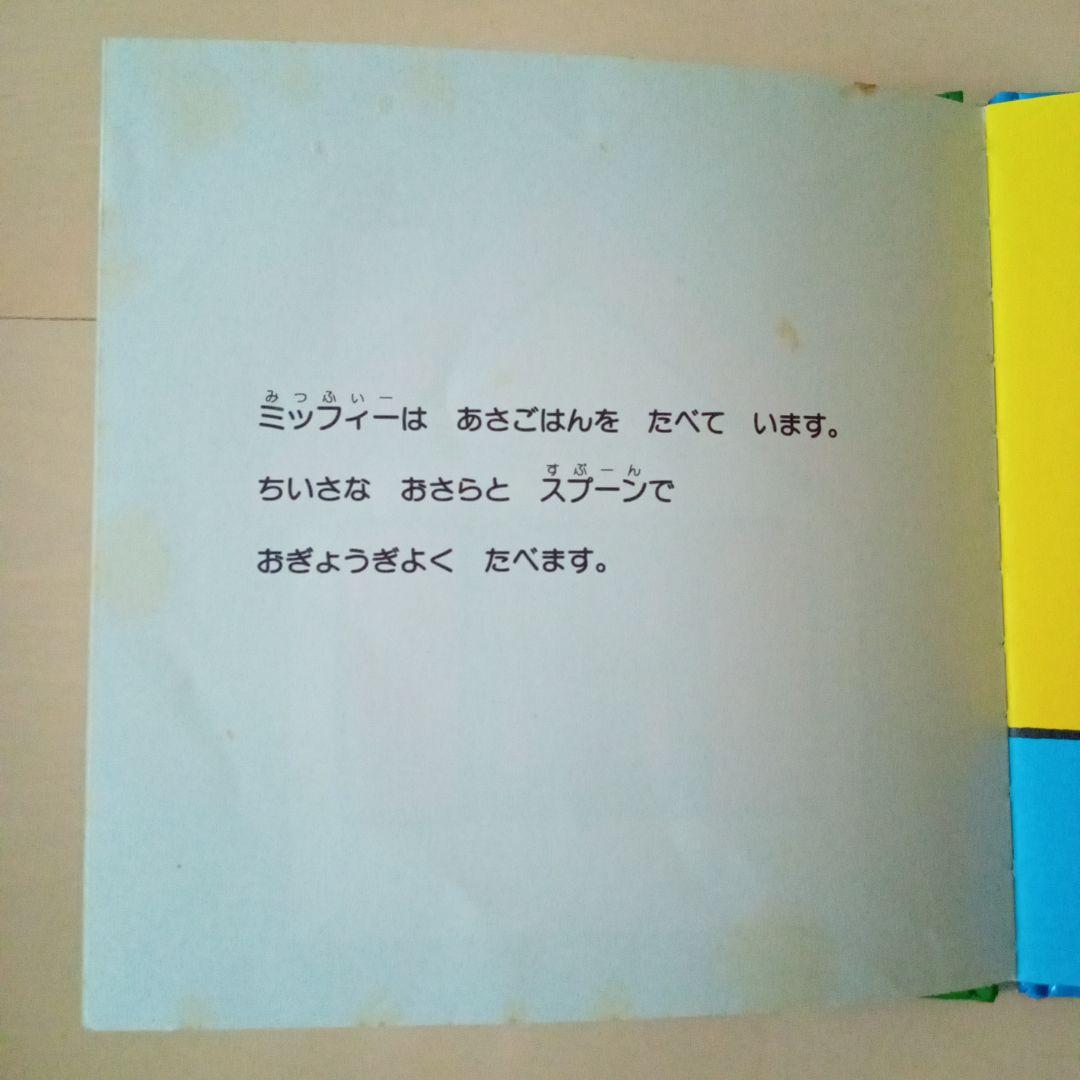 ミッフィーは　あさごはんを　たべて　います。
ちいさな　おさらと　スプーンで
おぎょうぎよく　たべます。